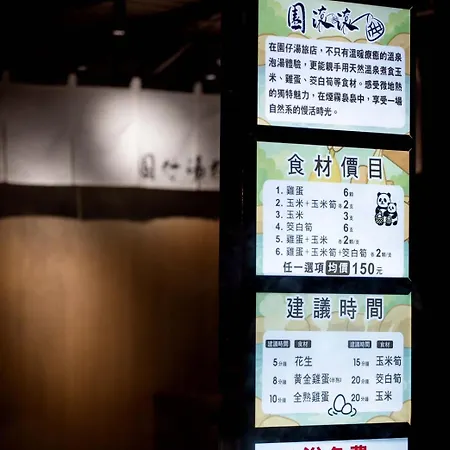 園滾滾
在園仔湯旅店,不只有溫暖療癒的溫泉
泡湯體驗,更能親手用天然溫泉煮食玉
米、雞蛋、筊白筍等食材。感受微地熱
的獨特魅力,在煙霧裊裊中,享受一場
自然系的慢活時光。
食材價目
1. 雞蛋 6顆
2. 玉米+玉米筍 各2支
3. 玉米 3支
4. 筊白筍 6支
5. 雞蛋+玉米 各2顆/支
6. 雞蛋+玉米筍+筊白筍 各2顆/支
任一選項 均價 150元
建議時間
建議時間 食材 建議時間 食材
5分鐘 花生 15分鐘 玉米筍
8分鐘 黃金雞蛋(半熟) 20分鐘 筊白筍
10分鐘 全熟雞蛋 20分鐘 玉米